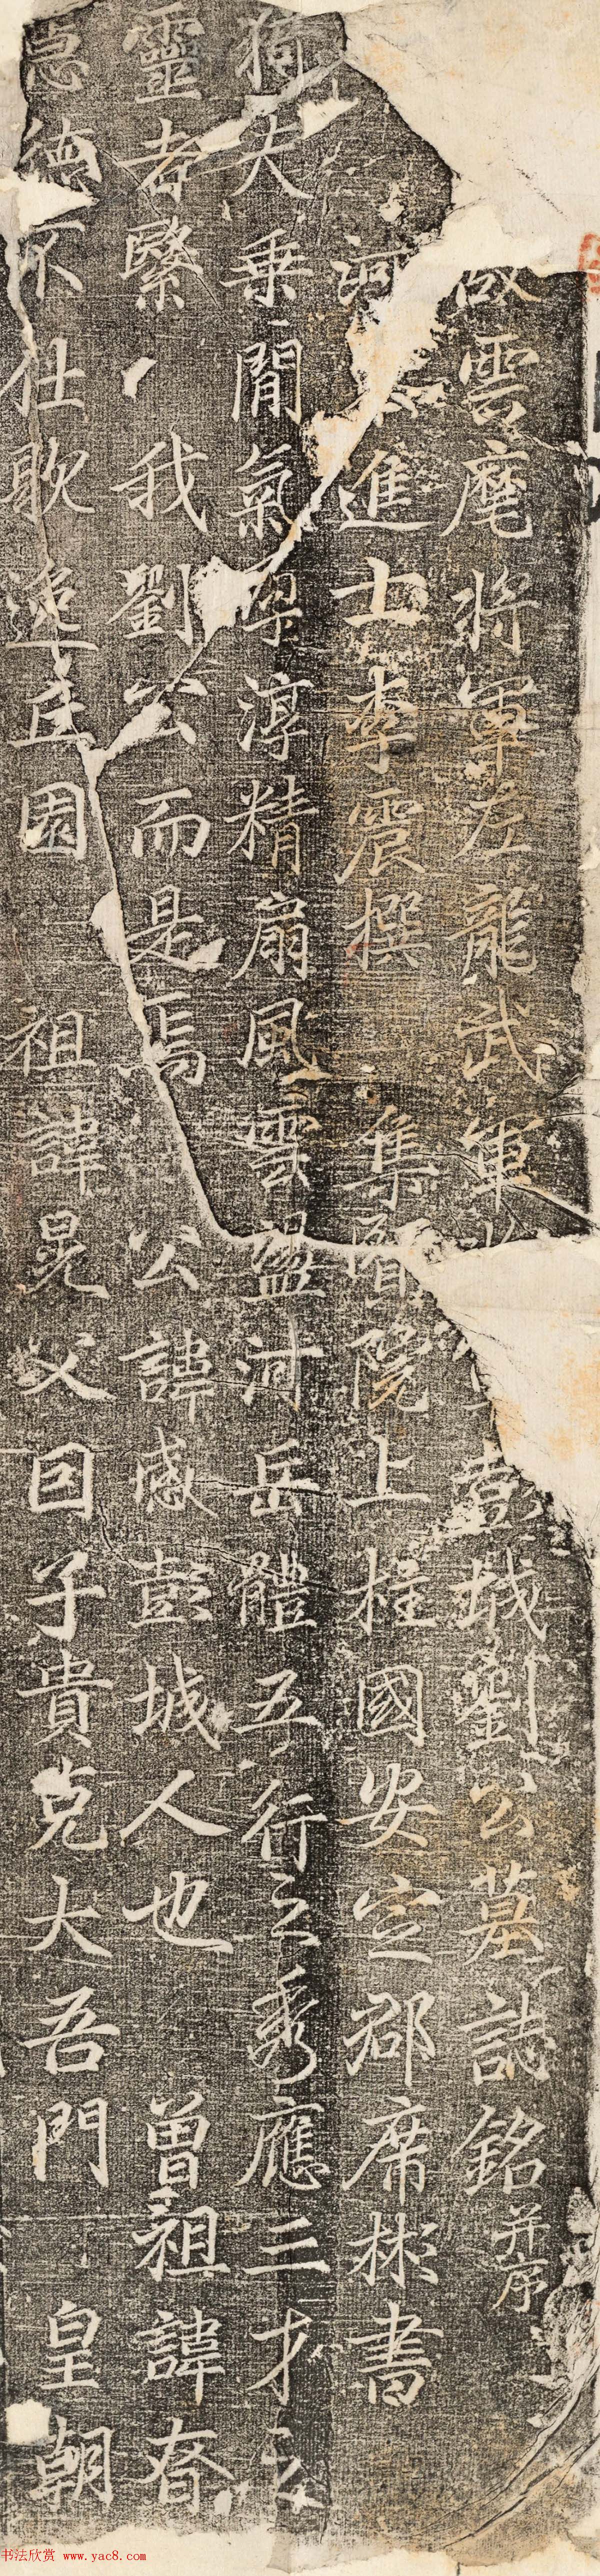 雲麾將軍左龍武軍 彭城劉公墓誌銘并序
河 進士李震撰 集賢院上柱國安定郡席彬書
夫乘間氣孕淳精扇風雲盪河岳體五行之秀應三才之
靈者緊 我劉公而是焉 公諱感彭城人也 曾祖諱
德不仕歌 丘園 祖諱晃父因子貴克大吾門 皇朝
书法欣赏 www.yac8.com